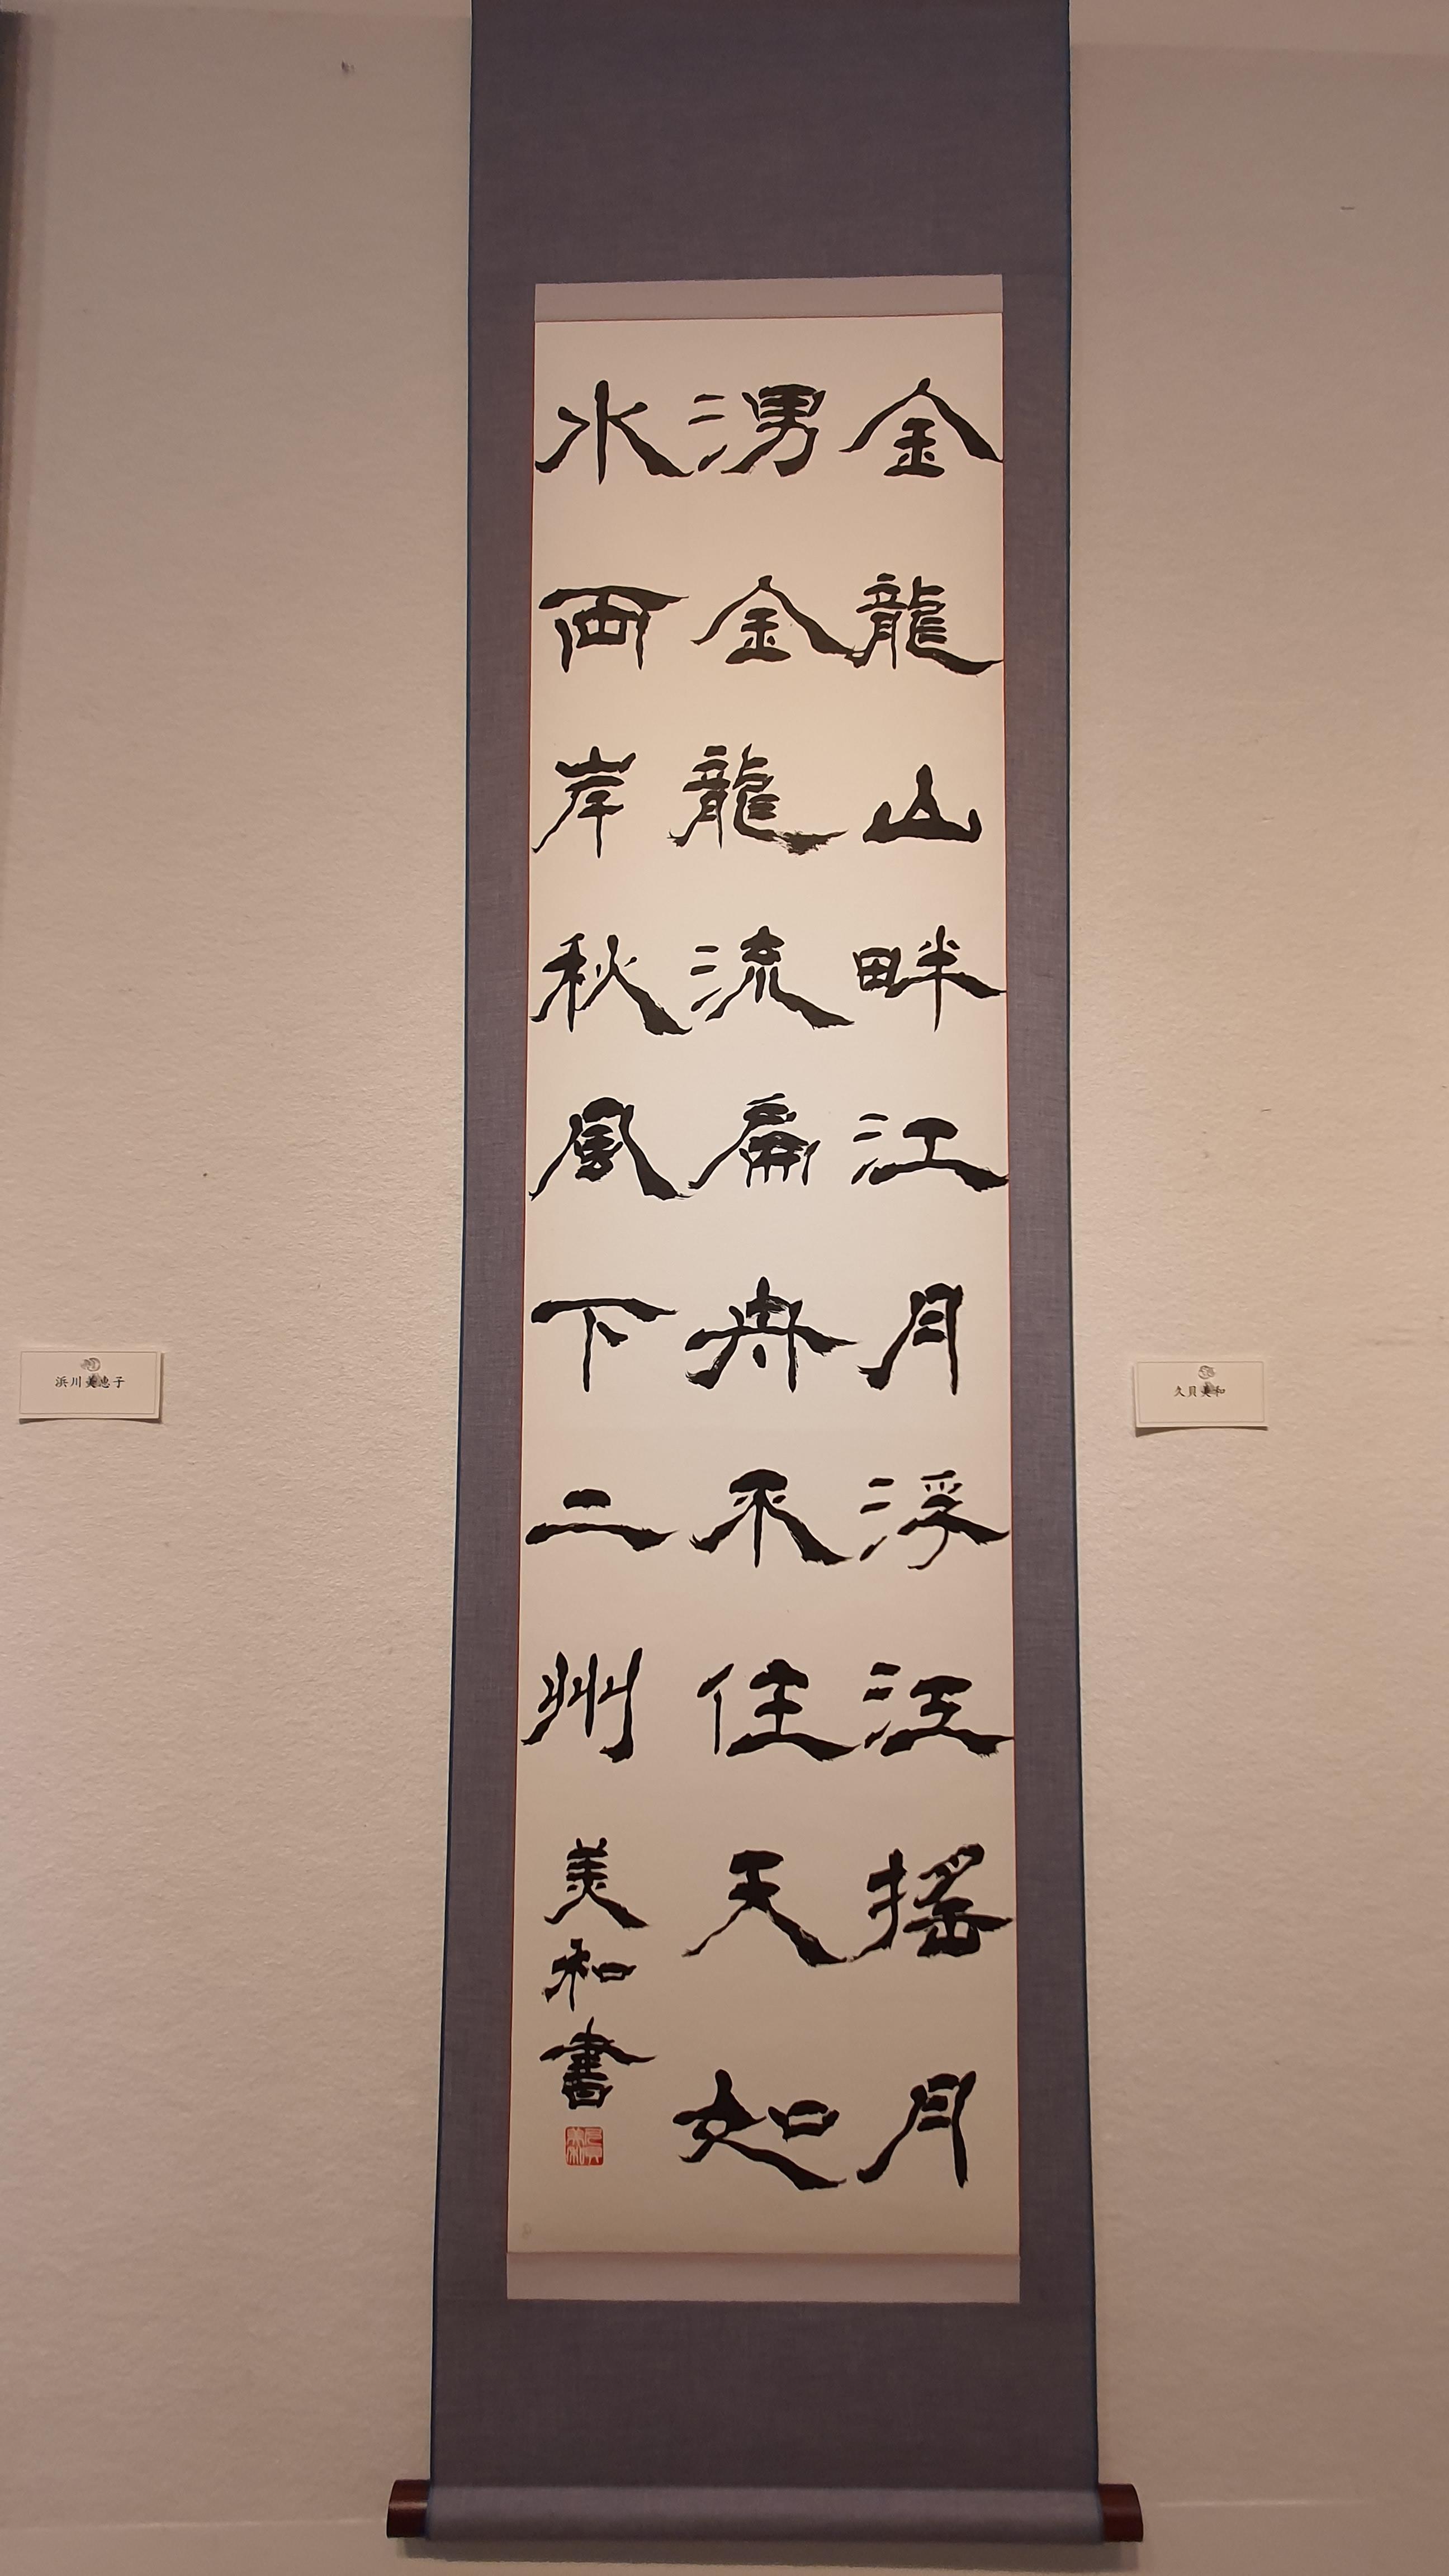 金龍山畔江月浮江搖月
湧金龍流扁舟不住天如
水兩岸秋風下二州
美和書
久貝美和
浜川美恵子